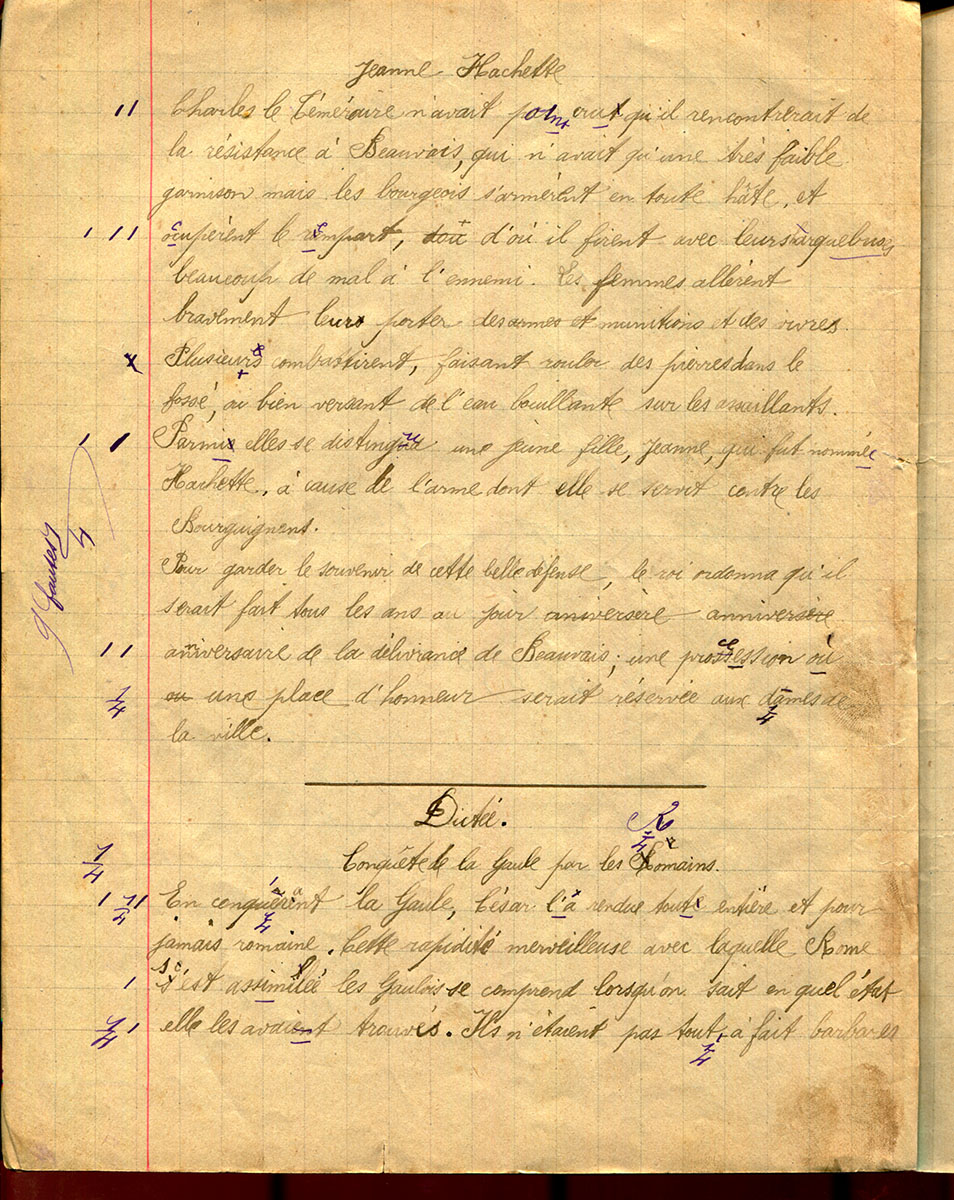 Jeanne Hachette
Charles le Téméraire n'avait point crut qu'il rencontrerait de
la résistance à Beauvais, qui n'avait qu'une très faible
garnison mais les bourgeois s'armèrent en toute hâte, et
ocupèrent le rempart, d'où il firent avec leurs arquebuses
beaucoup de mal à l'ennemi. Les femmes allèrent
bravement leurs porter des armes et munitions et des vivres.
Plusieurs combattirent, faisant rouler des pierres dans le
fossé, ou bien versant de l'eau bouillante sur les assaillants.
Parmis elles se distingua une jeune fille, Jeanne, qui fut nommée
Hachette, à cause de l'arme dont elle se servit contre les
Bourguignons.
Pour garder le souvenir de cette belle défense, le roi ordonna qu'il
serait fait tous les ans au jour aniversère anniversère
anniversaire de la délivrance de Beauvais; une procession où
ou une place d'honneur serait réservée aux dames de
la ville.
9 fautes 1/4
Dictée.
Conquête de la Gaule par les Romains.
En conquérant la Gaule, César l'a rendue toute entière et pour
jamais romaine. Cette rapidité merveilleuse avec laquelle Rome
s'est assimilée les Gaulois se comprend lorsqu'on sait en quel état
elle les avaient trouvés. Ils n'étaient pas tout à fait barbares